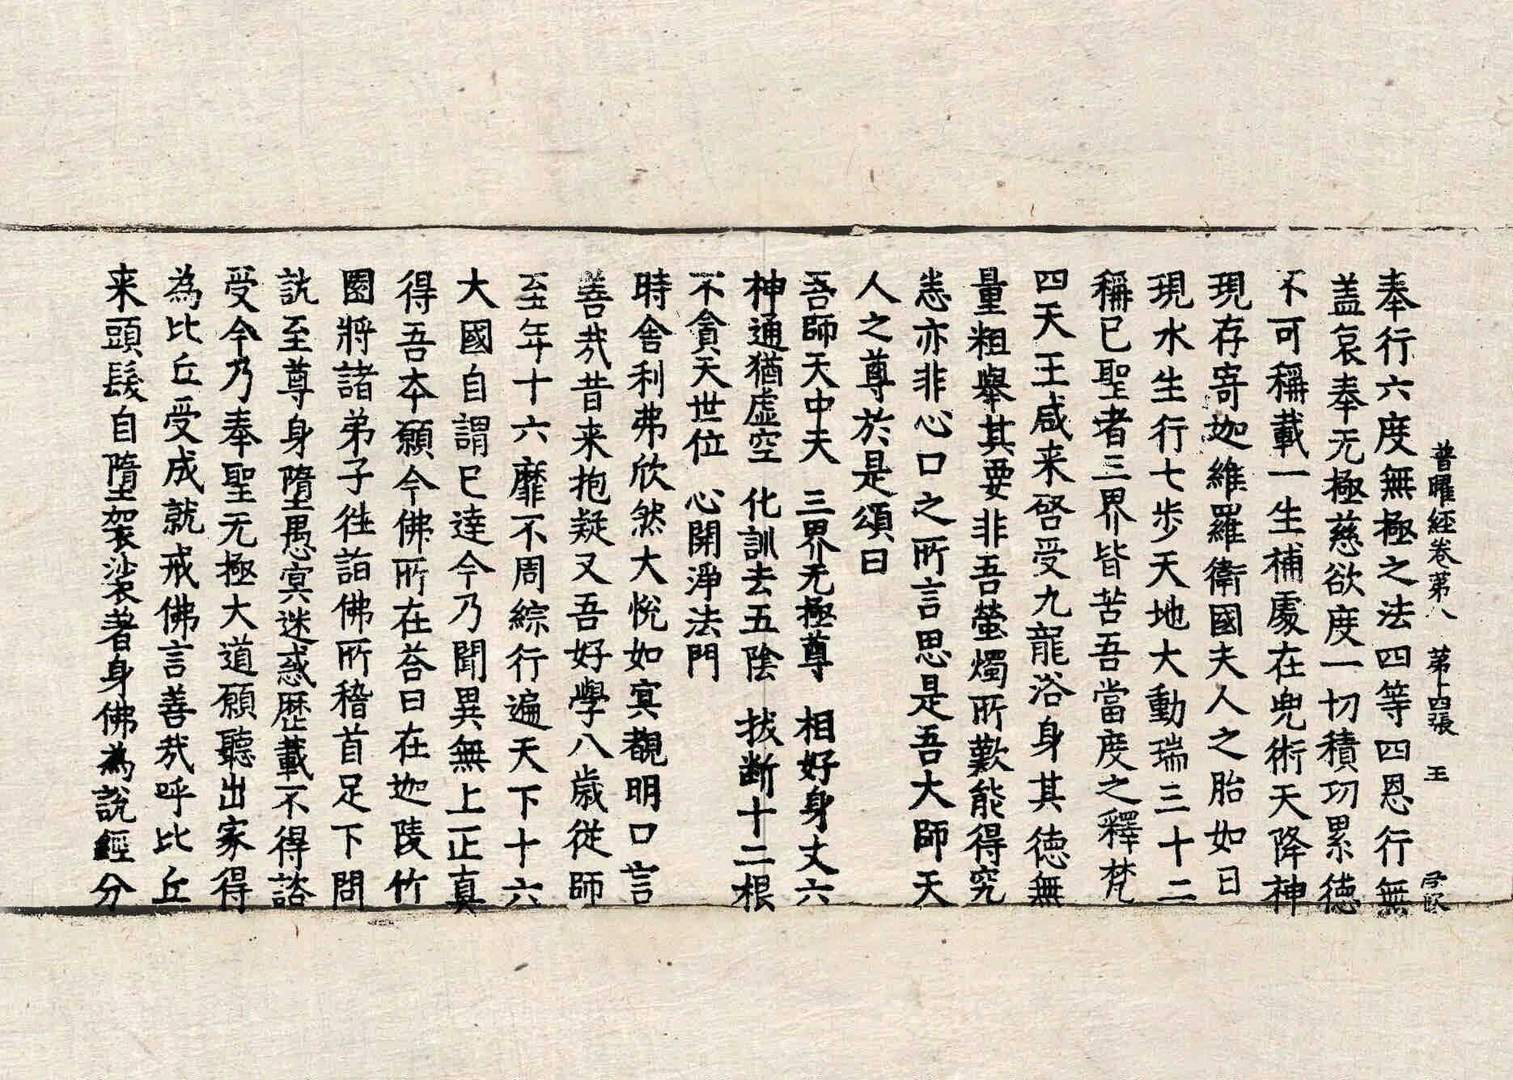 普曜經卷第八　第十四張　王
奉行六度無極之法四等四恩行無
盖哀奉无極慈欲度一切積功累德
不可稱載一生補處在兜術天降神
現存寄迦維羅衛國夫人之胎如日
現水生行七步天地大動瑞三十二
稱已聖者三界皆苦吾當度之釋梵
四天王咸来啓受九龍浴身其德無
量粗舉其要非吾螢燭所歎能得究
悉亦非心口之所言思是吾大師天
人之尊於是頌曰
吾師天中天　三界无極尊　相好身丈六
神通猶虚空　化訓去五陰　拔断十二根
不貪天世位　心開淨法門
時舍利弗欣然大悅如冥覩明口言
善㢤昔来抱疑又吾好學八歲從師
至年十六靡不周綜行遍天下十六
大國自謂已達今乃聞異無上正真
得吾本願今佛所在荅曰在迦陵竹
園將諸弟子徃詣佛所稽首足下問
訊至尊身墮愚㝠迷惑歷載不得諮
受今乃奉聖无極大道願聽出家得
為比丘受成就戒佛言善㢤呼比丘
来頭髮自墮袈裟著身佛為說經分